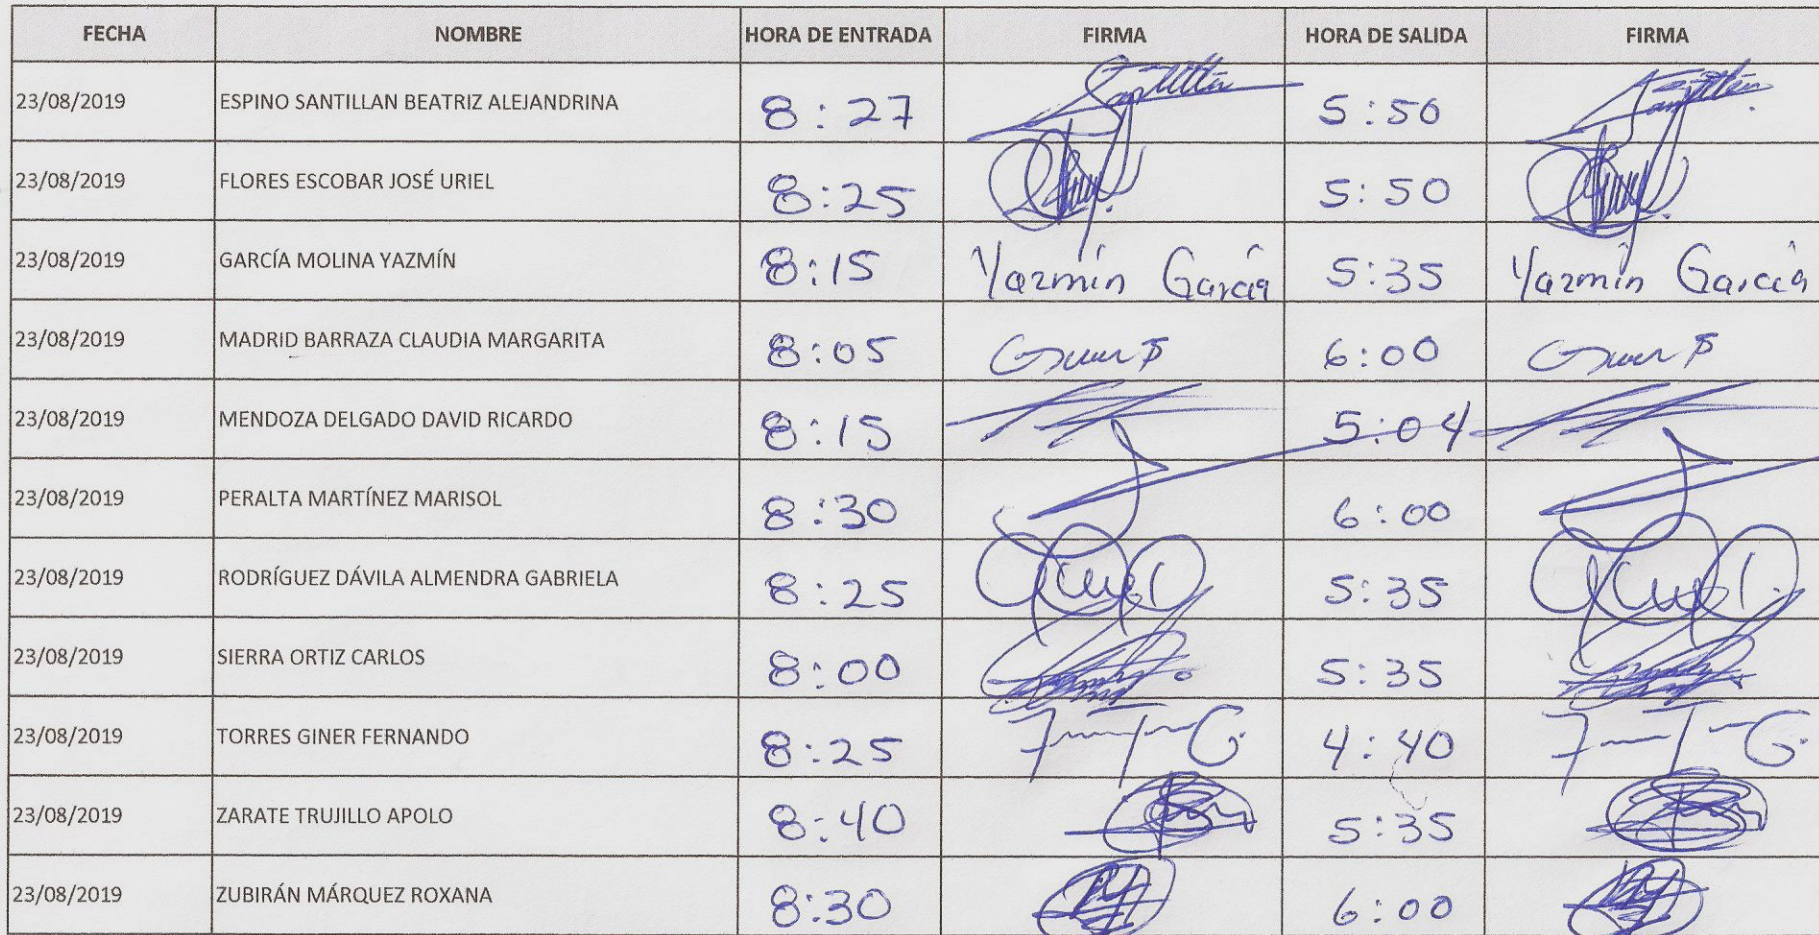 FECHA NOMBRE HORA DE ENTRADA FIRMA HORA DE SALIDA FIRMA
23/08/2019 ESPINO SANTILLAN BEATRIZ ALEJANDRINA 8:27 5:50
23/08/2019 FLORES ESCOBAR JOSÉ URIEL 8:25 5:50
23/08/2019 GARCÍA MOLINA YAZMÍN 8:15 Yazmín García 5:35 Yazmín García
23/08/2019 MADRID BARRAZA CLAUDIA MARGARITA 8:05 6:00
23/08/2019 MENDOZA DELGADO DAVID RICARDO 8:15 5:04
23/08/2019 PERALTA MARTÍNEZ MARISOL 8:30 6:00
23/08/2019 RODRÍGUEZ DÁVILA ALMENDRA GABRIELA 8:25 5:35
23/08/2019 SIERRA ORTIZ CARLOS 8:00 5:35
23/08/2019 TORRES GINER FERNANDO 8:25 4:40
23/08/2019 ZARATE TRUJILLO APOLO 8:40 5:35
23/08/2019 ZUBIRÁN MÁRQUEZ ROXANA 8:30 6:00